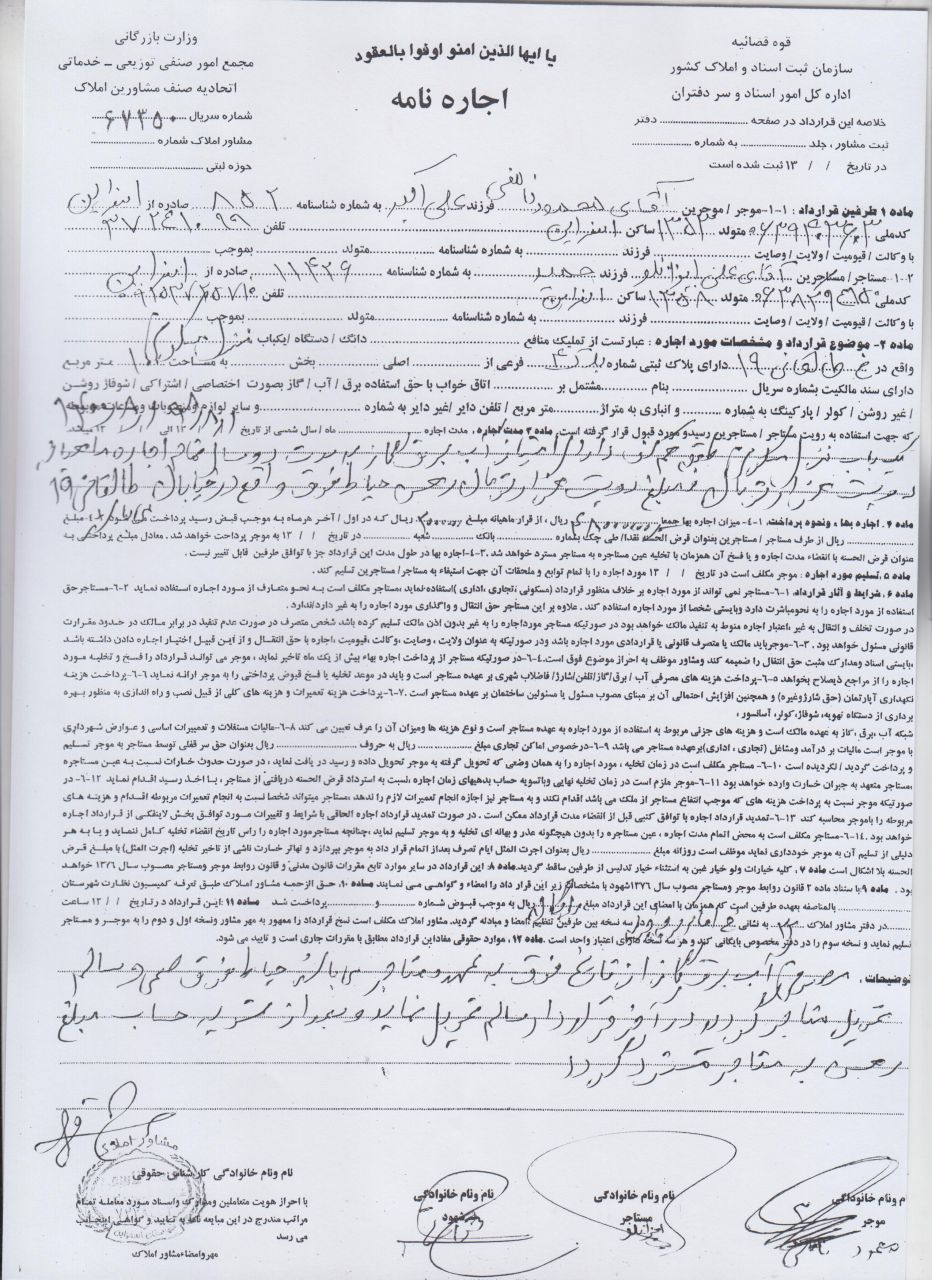 یا ایها الذین امنو اوفوا بالعقود
اجاره نامه
قوه قضائیه
سازمان ثبت اسناد و املاک کشور
اداره کل امور اسناد و سر دفتران
خلاصه این قرارداد در صفحه ........ دفتر
ثبت مشاور ، جلد ........ به شماره ........
در تاریخ / / ۱۳ ثبت شده است
وزارت بازرگانی
مجمع امور صنفی توزیعی ــ خدماتی
اتحادیه صنف مشاورین املاک
شماره سریال ۶۷۳۵۰
مشاور املاک شماره ........
حوزه ثبتی ........
ماده ۱ طرفین قرارداد : ۱-۱-موجر / موجرین آقای محمود فرزند علی اکبر به شماره شناسنامه ۸۵۲ صادره از اسفراین
کدملی متولد ساکن اسفراین تلفن
با وکالت / قیومیت / ولایت / وصایت ........ فرزند ........ به شماره شناسنامه ........ متولد ........ بموجب ........
۱-۲ مستاجر / مستاجرین آقای علی فرزند به شماره شناسنامه ۱۱۴۲۶ صادره از اسفراین
کدملی متولد ۱۳۵۸ ساکن اسفراین تلفن
با وکالت / قیومیت / ولایت / وصایت ........ فرزند ........ به شماره شناسنامه ........ متولد ........ بموجب ........
ماده ۲- موضوع قرارداد و مشخصات مورد اجاره : عبارتست از تملیک منافع ........ دانگ / دستگاه / یکباب منزل مسکونی
واقع در خ طالقانی ۱۹ دارای پلاک ثبتی شماره فرعی از ........ اصلی ........ بخش ........ به مساحت ۱۰۰ متر مربع
دارای سند مالکیت بشماره سریال ........ بنام ........ مشتمل بر ........ اتاق خواب با حق استفاده برق / آب / گاز بصورت اختصاصی / اشتراکی / شوفاژ روشن
/ غیر روشن / کولر / پارکینگ به شماره ........ و انباری به متراژ ........ متر مربع / تلفن دایر / غیر دایر به شماره ........ و سایر لوازم و
که جهت استفاده به رویت مستاجر / مستاجرین رسیدو مورد قبول قرار گرفته است. ماده ۳ مدت اجاره . مدت اجاره ........ ماه / سال شمسی از تاریخ
یکباب منزل مسکونی طبقه همکف دارای امتیاز آب برق گاز به مدت دو سال تمام اجاره ماهیانه
دویست هزار تومان و مبلغ دویست هزار تومان رهن حیاط فوق واقع در خیابان طالقانی ۱۹
ماده ۴ . اجاره بها ، ونحوه پرداخت. ۱-۴- میزان اجاره بها جمعا ریال ، از قرار ماهیانه مبلغ ریال که در اول / آخر هرماه به موجب قبض رسید پرداخت می شود.
ریال از طرف مستاجر / مستاجرین بعنوان قرض الحسنه نقدا/ طی چک بشماره ........ بانک ........ شعبه ........ در تاریخ / / ۱۳ به موجر پرداخت خواهد شد . معادل مبلغ پرداختی به
عنوان قرض الحسنه با انقضاء مدت اجاره و یا فسخ آن همزمان با تخلیه عین مستاجره به مستاجر مسترد خواهد شد .۳-۴-اجاره بها در طول مدت این قرارداد جز با توافق طرفین قابل تغییر نیست .
ماده ۵.تسلیم مورد اجاره : موجر مکلف است در تاریخ / / ۱۳ مورد اجاره را با تمام توابع و ملحقات آن جهت استیفاء به مستاجر/ مستاجرین تسلیم کند .
ماده ۶ . شرایط و آثار قرارداد. ۱-۶-مستاجر نمی تواند از مورد اجاره بر خلاف منظور قرارداد (مسکونی ،تجاری ،اداری )استفاده نماید ،مستاجر مکلف است به نحو متعارف از مورد اجاره استفاده نماید ۲-۶-مستاجر حق
استفاده از مورد اجاره را به نحومباشرت دارد وبایستی شخصا از مورد اجاره استفاده کند . علاوه بر این مستاجر حق انتقال و واگذاری مورد اجاره را به غیر دارد/ندارد .
در صورت تخلف و انتقال به غیر ،اعتبار اجاره منوط به تنفیذ مالک خواهد بود در صورتیکه مستاجر مورداجاره را به غیر بدون اذن مالک تسلیم کرده باشد شخص متصرف در صورت عدم تنفیذ در برابر مالک در حدود مقررات
قانونی مسئول خواهد بود . ۳-۶-موجرباید مالک یا متصرف قانونی یا قراردادی مورد اجاره باشد ودر صورتیکه به عنوان ولایت ،وصایت ،وکالت ،قیومیت ،اجاره با حق انتقال و از این قبیل اختیار اجاره دادن داشته باشد
،بایستی اسناد ومدارک مثبت حق انتقال را ضمیمه کند ومشاور موظف به احراز موضوع فوق است.۴-۶-در صورتیکه مستاجر از پرداخت اجاره بهاء بیش از یک ماه تاخیر نماید ، موجر می تواند قرارداد را فسخ و تخلیه مورد
اجاره را از مراجع ذیصلاح بخواهد ۵-۶-پرداخت هزینه های مصرفی آب / برق/گاز/تلفن/شارژ/ فاضلاب شهری بر عهده مستاجر است و باید در موعد تخلیه یا فسخ قبوض پرداختی را به موجر ارائه نماید ۶-۶-پرداخت هزینه
نگهداری آپارتمان (حق شارژوغیره) و همچنین افزایش احتمالی آن بر مبنای مصوب مسئول یا مسئولین ساختمان بر عهده مستاجر است .۷-۶-پرداخت هزینه تعمیرات و هزینه های کلی از قبیل نصب و راه اندازی به منظور بهره
برداری از دستگاه تهویه، شوفاژ،کولر، آسانسور ،
شبکه آب ،برق ،گاز به عهده مالک است و هزینه های جزئی مربوط به استفاده از مورد اجاره به عهده مستاجر است و نوع هزینه ها ومیزان آن را عرف تعیین می کند ۸-۶-مالیات مستغلات و تعمیرات اساسی و عوارض شهرداری
با موجر است مالیات بر درآمد ومشاغل (تجاری ، اداری)برعهده مستاجر می باشد ۹-۶-درخصوص اماکن تجاری مبلغ ........ ریال به حروف ........ ریال بعنوان حق سر قفلی توسط مستاجر به موجر تسلیم
و پرداخت گردید / نگردیده است ۱۰-۶- مستاجر مکلف است در زمان تخلیه ، مورد اجاره را به همان وضعی که تحویل گرفته به موجر تحویل داده و رسید در یافت نماید ، در صورت حدوث خسارات نسبت به عین مستاجره
،مستاجر متعهد به جبران خسارت وارده خواهد بود ۱۱-۶-موجر ملزم است در زمان تخلیه نهایی وباتسویه حساب بدهیهای زمان اجاره ،نسبت به استرداد قرض الحسنه دریافتی از مستاجر ، با اخذ رسید اقدام نماید ۱۲-۶-در
صورتیکه موجر نسبت به پرداخت هزینه های که موجب انتفاع مستاجر از ملک می باشد اقدام نکند و به مستاجر نیز اجازه انجام تعمیرات لازم را ندهد ،مستاجر میتواند شخصا نسبت به انجام تعمیرات مربوطه اقدام و هزینه های
مربوطه را باموجر محاسبه کند ۱۳-۶-تمدید قرارداد اجاره با توافق کتبی قبل از انقضاء مدت قرارداد ممکن است . در صورت تمدید قرارداد اجاره الحاقی با شرایط و تغییرات مورد توافق بخش لاینفکی از قرارداد اجاره
خواهد بود .۱۴-۶-مستاجر مکلف است به محض اتمام مدت اجاره ، عین مستاجره را بدون هیچگونه عذر و بهانه ای تخلیه و به موجر تسلیم نماید ،چنانچه مستاجرمورد اجاره را راس تاریخ انقضاء تخلیه کامل ننماید و یا به هر
دلیلی از تسلیم آن به موجر خودداری نماید موظف است روزانه مبلغ ........ ریال بعنوان اجرت المثل ایام تصرف بعداز اتمام قرار داد به موجر بپردازد و تهاتر خسارت ناشی از تاخیر تخلیه (اجرت المثل) با مبلغ قرض
الحسنه بلا اشکال است ماده ۷ . کلیه خیارات ولو خیار غبن به استثناء خیار تدلیس از طرفین ساقط گردید.ماده ۸ این قرارداد در سایر موارد تابع مقررات قانون مدنی و قانون روابط موجر ومستاجر مصوب سال ۱۳۷۶ خواهد
بود . ماده ۹با ستناد ماده ۲ قانون روابط موجر ومستاجر مصوب سال ۱۳۷۶شهود با مشخصات زیر این قرار داد را امضاء و گواهی می نمایند ماده ۱۰. حق الزحمه مشاور املاک طبق تعرفه کمیسیون نظارت شهرستان
........ بالمناصفه بعهده طرفین است که همزمان با امضای این قرارداد مبلغ ریال به موجب قبوض شماره ........ و ........ پرداخت شد ماده ۱۱: این قرارداد در تاریخ / / ۱۳ ساعت
........ در دفتر مشاور املاک به نشانی در سه نسخه بین طرفین تنظیم ،امضا و مبادله گردید. مشاور املاک مکلف است نسخ قرارداد را ممهور به مهر مشاور ونسخه اول و دوم را به موجر و مستاجر
تسلیم نماید و نسخه سوم را در دفتر مخصوص بایگانی کند و هر سه نسخه دارای اعتبار واحد است . ماده ۱۲ . موارد حقوقی مفاداین قرارداد مطابق با مقررات جاری است و تایید می شود.
توضیحات . مصرفی آب برق گاز از تاریخ فوق به عهده مستاجر می باشد حیاط فوق صحیح و سالم
تحویل مستاجر گردید در آخر قرارداد سالم تحویل نماید و بعد از تسویه حساب مبلغ
رهن به مستاجر مسترد گردد
نام ونام خانوادگی
موجر
نام ونام خانوادگی
مستاجر
نام ونام خانوادگی
شهود
نام ونام خانوادگی کارشناس حقوقی
با احراز هویت متعاملین ومدارک واسناد مورد معامله تمام
مراتب مندرج در این مبایعه نامه به تایید و گواهی اینجانب
می رسد
مهروامضاءمشاور املاک
مشاور املاک